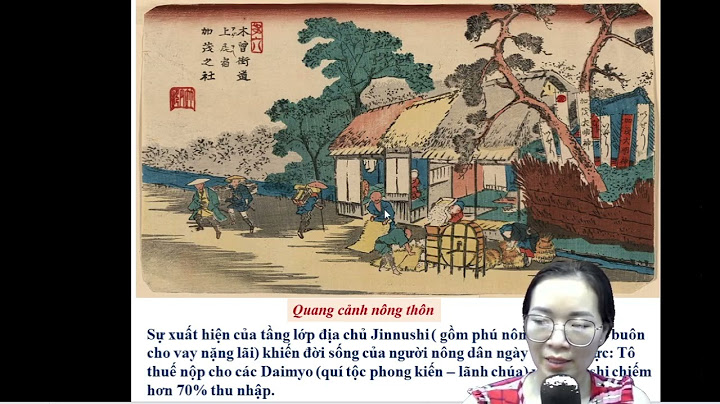 木曽街道
上尾宿
加茂之社
Quang cảnh nông thôn
Sự xuất hiện của tầng lớp địa chủ Jinnushi ( gồm phú nôn buôn
cho vay nặng lãi) khiến đời sống của người nông dân ngày ực: Tô
thuế nộp cho các Daimyo (quí tộc phong kiến – lãnh chúa) hi chiếm
hơn 70% thu nhập.